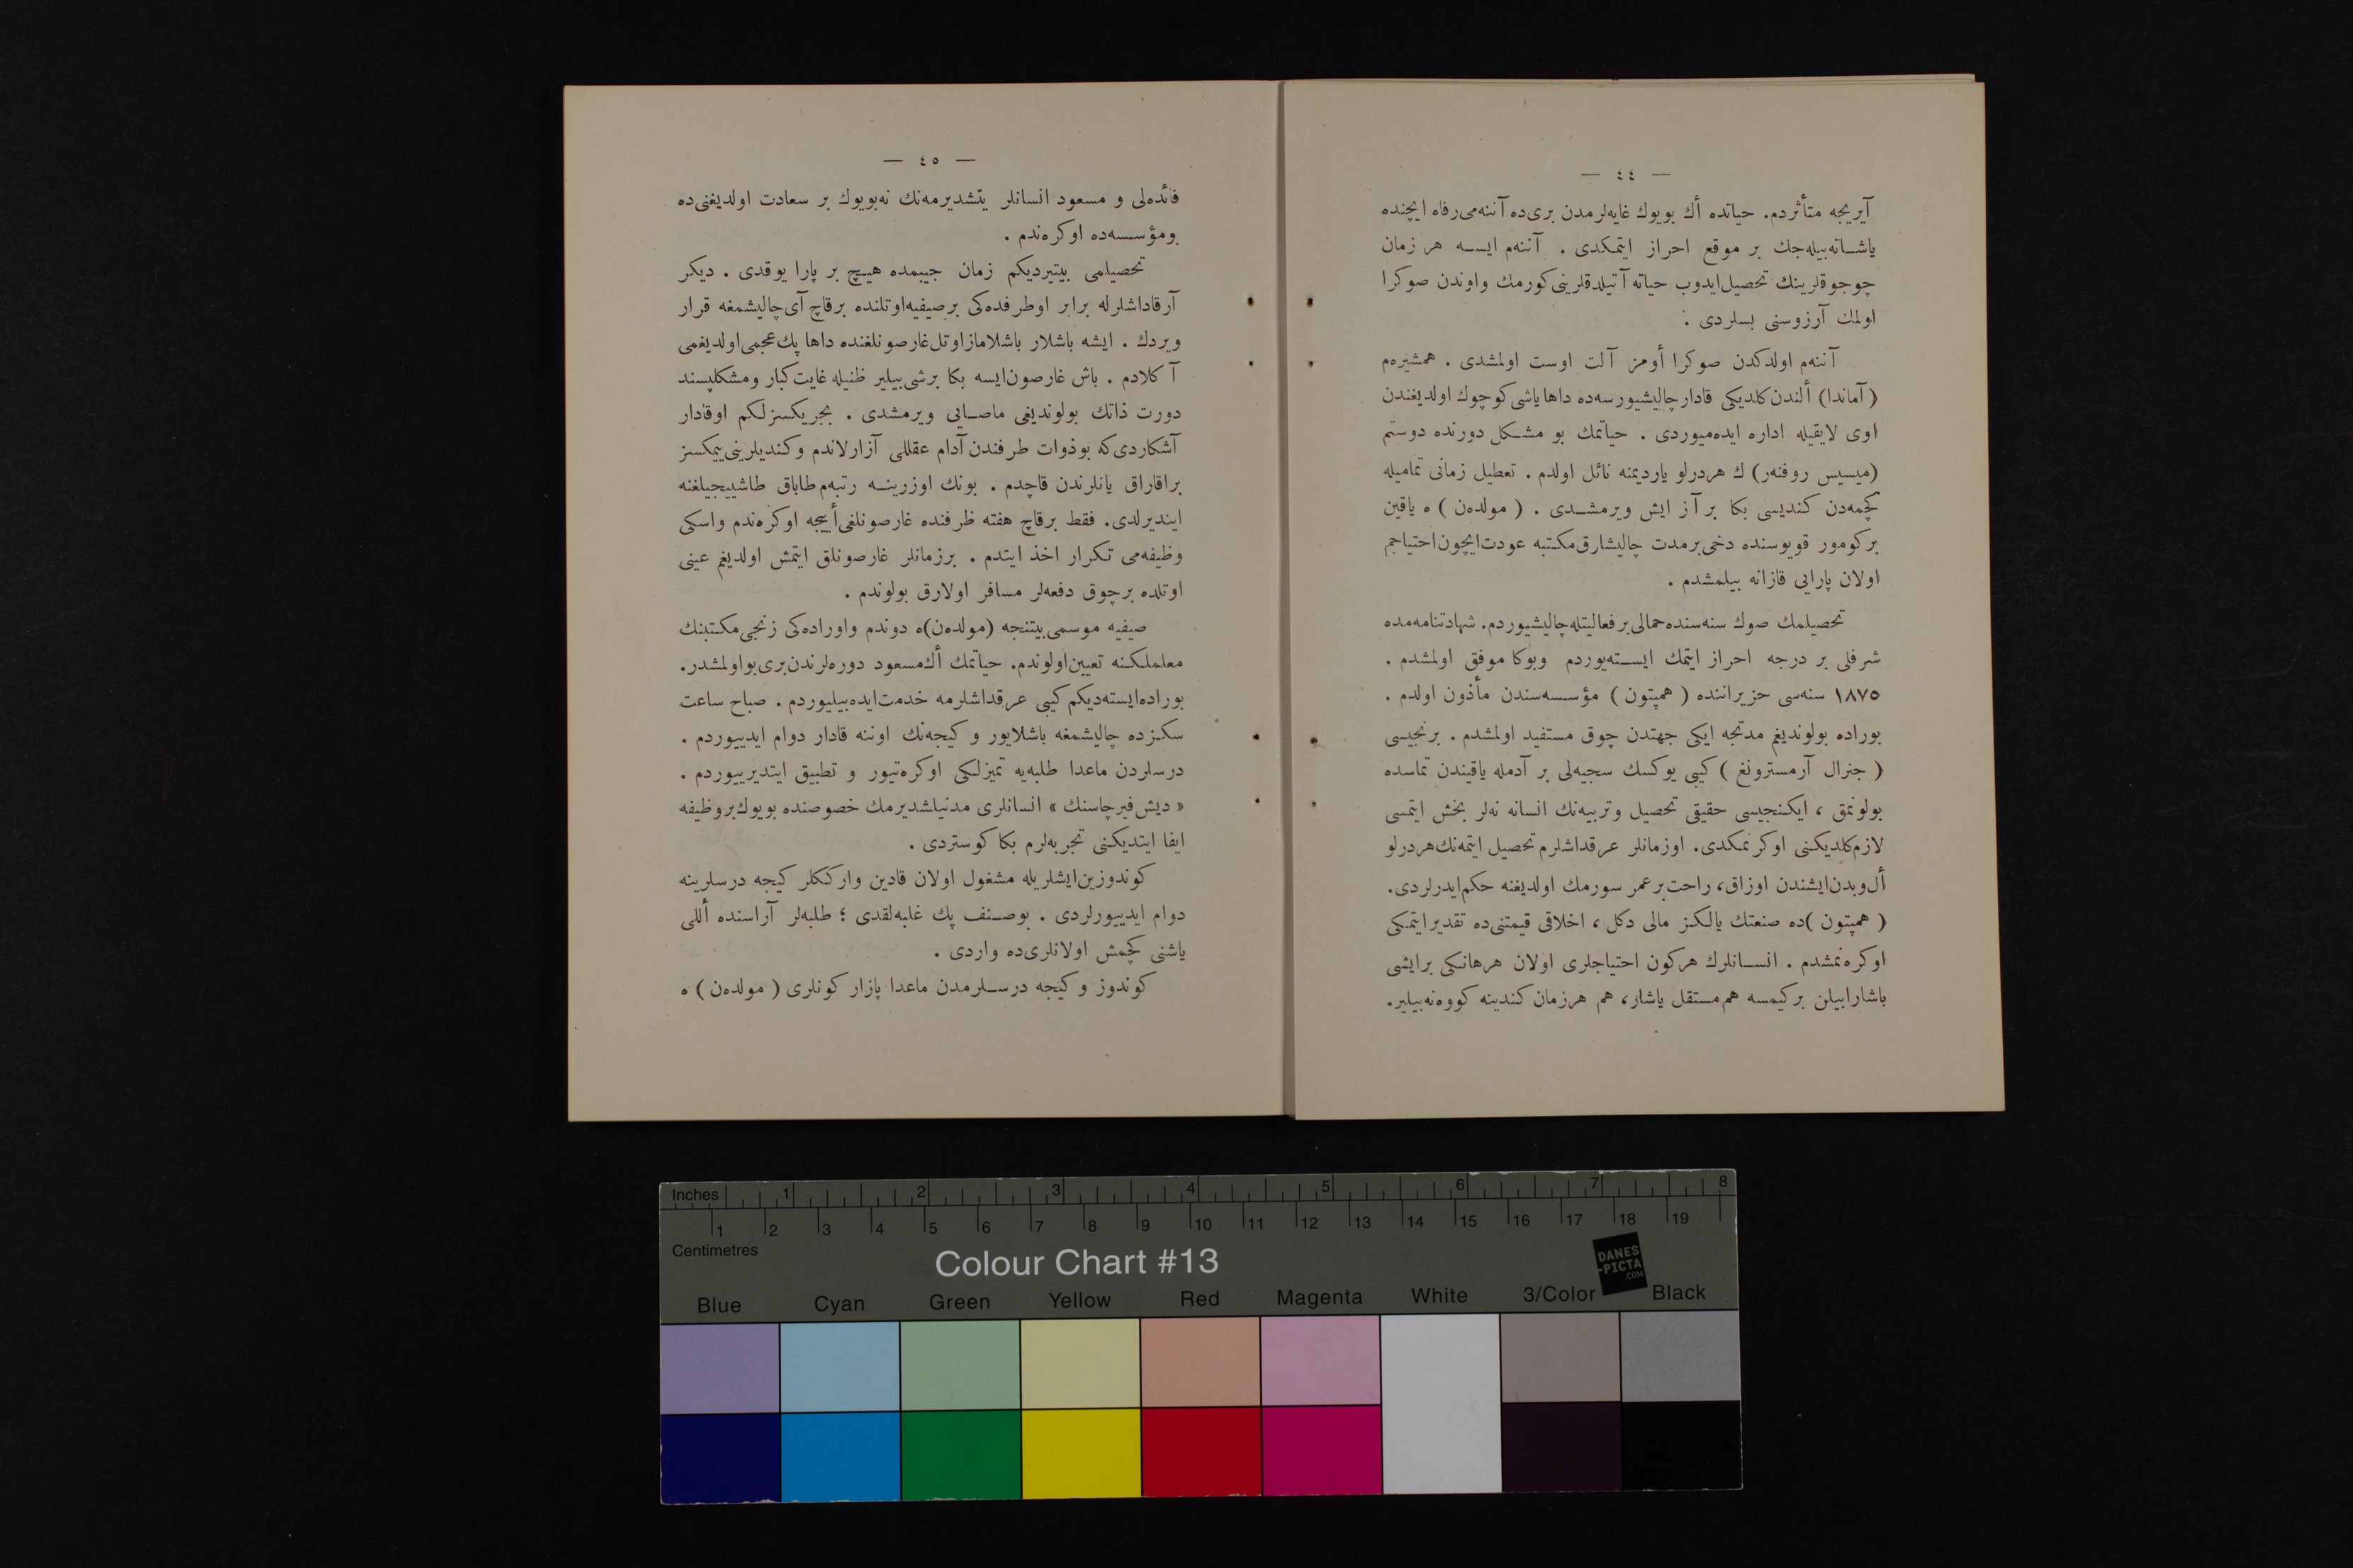 — ٤٤ —
آيريجه متأثردم. حياتده أك بويوك غايه‌لرمدن برى‌ده آننه‌مى رفاه ايچنده
ياشاته‌بيله‌جك بر موقع احراز ايتمكدى . آننه‌م ايسه هر زمان
چوجوقلرينك تحصيل ايدوب حياته آتيلدقلرينى كورمك واوندن صوكرا
اولمك آرزوسنى بسلردى .
آننه‌م اولدكدن صوكرا أومز آلت اوست اولمشدى . همشيره‌م
(آماندا) ألندن كلديكى قادار چاليشيورسه‌ده داها ياشى كوچوك اولديغندن
اوى لايقيله اداره ايده‌ميوردى . حياتمك بو مشكل دورنده دوستم
(ميسيس روفنه‌ر) ك هردرلو يارديمنه نائل اولدم . تعطيل زمانى تماميله
كچمه‌دن كنديسى بكا بر آز ايش ويرمشدى . ( مولده‌ن ) ه ياقين
بركومور قويوسنده دخى برمدت چاليشارق مكتبه عودت ايچون احتياجم
اولان پارايى قازانه بيلمشدم .
تحصيلمك صوك سنه‌سنده حمالى برفعاليتله چاليشيوردم. شهادتنامه‌مده
شرفلى بر درجه احراز ايتمك ايسته‌يوردم وبوكا موفق اولمشدم .
١٨٧٥ سنه‌سى حزيراننده ( همپتون ) مؤسسه‌سندن مأذون اولدم .
بوراده بولونديغم مدتجه ايكى جهتدن چوق مستفيد اولمشدم . برنجيسى
( جنرال آرمسترونغ ) كيبى يوكسك سجيه‌لى بر آدمله ياقيندن تماسده
بولونمق ، ايكنجيسى حقيقى تحصيل وتربيه‌نك انسانه نه‌لر بخش ايتمسى
لازم‌كلديكنى اوكرنمكدى. اوزمانلر عرقداشلرم تحصيل ايتمه‌نك هردرلو
أل وبدن ايشندن اوزاق، راحت برعمر سورمك اولديغنه حكم ايدرلردى.
( همپتون )ده صنعتك يالكز مالى دكل ، اخلاقى قيمتنى‌ده تقدير ايتمكى
اوكره‌نمشدم . انسانلرك هركون احتياجلرى اولان هرهانكى برايشى
باشارابيلن بركيمسه هم مستقل ياشار، هم هرزمان كندينه كووه‌نه‌بيلير.
— ٤٥ —
فائده‌لى و مسعود انسانلر يتشديرمه‌نك نه‌بويوك بر سعادت اولديغنى‌ده
بومؤسسه‌ده اوكره‌ندم .
تحصيلمى بيتيرديكم زمان جيبمده هيچ بر پارا يوقدى . ديكر
آرقاداشلرله برابر اوطرفده‌كى برصيفيه‌اوتلنده برقاچ آى چاليشمغه قرار
ويردك . ايشه باشلار باشلاماز اوتل غارصونلغنده داها پك عجمى اولديغمى
آكلادم . باش غارصون ايسه بكا برشى بيلير ظنيله غايت كبار ومشكلپسند
دورت ذاتك بولونديغى ماصايى ويرمشدى . بجريكسزلكم اوقادار
آشكاردى‌كه بوذوات طرفندن آدام عقللى آزارلاندم وكنديلرينى ييمكسز
براقاراق يانلرندن قاچدم . بونك اوزرينه رتبه‌م طاباق طاشييجيلغنه
اينديرلدى. فقط برقاچ هفته ظرفنده غارصونلغى أييجه اوكره‌ندم واسكى
وظيفه‌مى تكرار اخذ ايتدم . برزمانلر غارصونلق ايتمش اولديغم عينى
اوتلده برچوق دفعه‌لر مسافر اولارق بولوندم .
صيفيه موسمى بيتنجه (مولده‌ن)ه دوندم واوراده‌كى زنجى مكتبنك
معلملكنه تعيين اولوندم. حياتمك أك مسعود دوره‌لرندن برى بو اولمشدر.
بوراده ايسته‌ديكم كيبى عرقداشلرمه خدمت ايده‌بيليوردم . صباح ساعت
سكزده چاليشمغه باشلايور و كيجه‌نك اوننه قادار دوام ايدييوردم .
درسلردن ماعدا طلبه‌يه تميزلكى اوكره‌تيور و تطبيق ايتديرييوردم .
« ديش فيرچاسنك » انسانلرى مدنيلشديرمك خصوصنده بويوك بروظيفه
ايفا ايتديكنى تجربه‌لرم بكا كوستردى .
كوندوزين ايشلريله مشغول اولان قادين واركككلر كيجه درسلرينه
دوام ايدييورلردى . بوصنف پك غلبه‌لقدى ؛ طلبه‌لر آراسنده أللى
ياشنى كچمش اولانلرى‌ده واردى .
كوندوز و كيجه درسلرمدن ماعدا پازار كونلرى ( مولده‌ن ) ه
Inches 1 2 3 4 5 6 7 8
1 2 3 4 5 6 7 8 9 10 11 12 13 14 15 16 17 18 19
Centimetres
Colour Chart #13
DANES
-PICTA
.COM
Blue Cyan Green Yellow Red Magenta White 3/Color Black